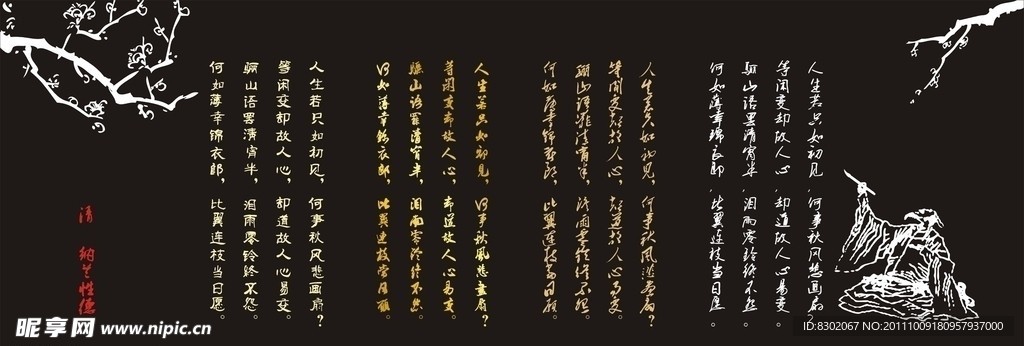 人生若只如初见,何事秋风悲画扇?
等闲变却故人心,却道故人心易变。
骊山语罢清宵半,泪雨零铃终不怨。
何如薄幸锦衣郎,比翼连枝当日愿。
人生若只如初见,何事秋风悲画扇?
等闲变却故人心,却道故人心易变。
骊山语罢清宵半,泪雨零铃终不怨。
何如薄幸锦衣郎,比翼连枝当日愿。
人生若只如初见,何事秋风悲画扇?
等闲变却故人心,却道故人心易变。
骊山语罢清宵半,泪雨零铃终不怨。
何如薄幸锦衣郎,比翼连枝当日愿。
人生若只如初见,何事秋风悲画扇?
等闲变却故人心,却道故人心易变。
骊山语罢清宵半,泪雨零铃终不怨。
何如薄幸锦衣郎,比翼连枝当日愿。
清 纳兰性德
昵享网 www.nipic.cn
ID:8302067 NO:20111009180957937000